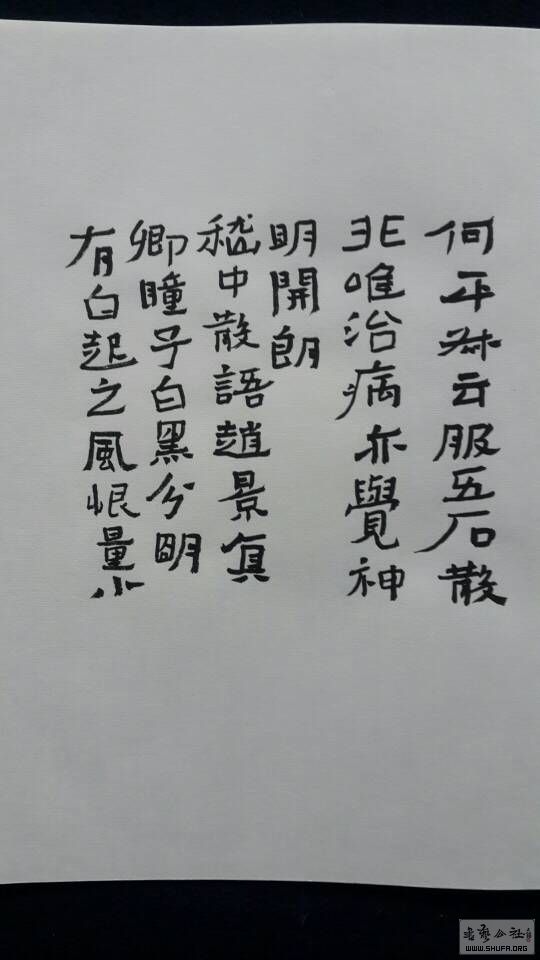 何平叔云服五石散
非唯治病亦覺神
明開朗
嵇中散語趙景真
卿瞳子白黑分明
有白起之風恨量小
WWW.SHUFA.ORG